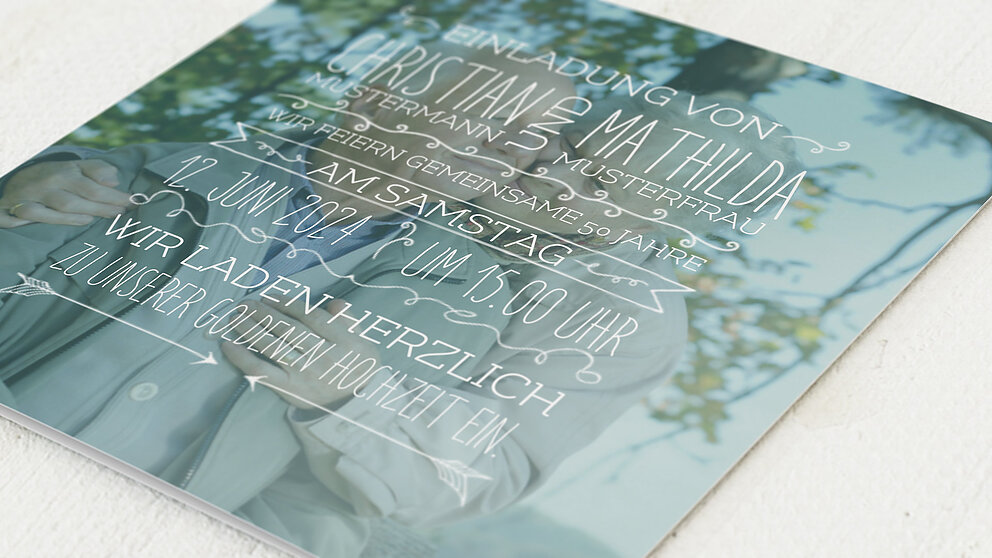 EINLADUNG VON
CHRISTIAN & MATHILDA
MUSTERMANN MUSTERFRAU
WIR FEIERN GEMEINSAME 50 JAHRE
AM SAMSTAG
12. JUNI 2024 / UM 15.00 UHR
WIR LADEN HERZLICH
ZU UNSERER GOLDENEN HOCHZEIT EIN.